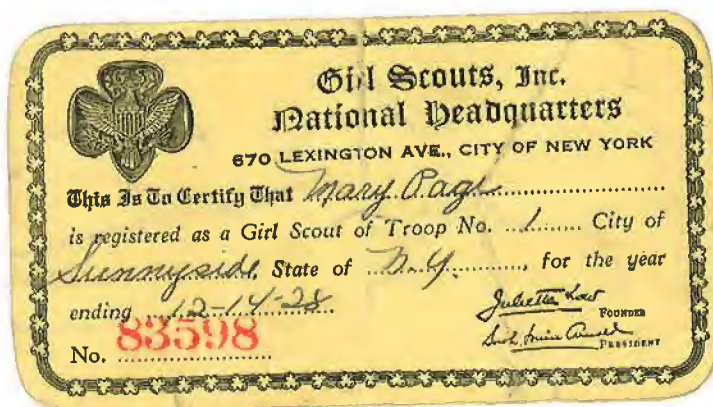 Girl Scouts, Inc.
National Headquarters
670 LEXINGTON AVE., CITY OF NEW YORK
This Is To Certify That Mary Page
is registered as a Girl Scout of Troop No. 1 City of
Sunnyside State of N.Y., for the year
ending 12-14-28
Juliette Low
FOUNDER
No. 83598
PRESIDENT